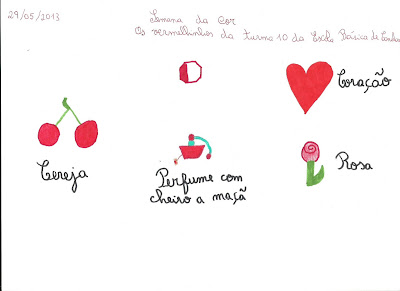 29/05/2013
Semana da Cor
Os vermelhinhos da turma 10 da Escola Básica de
Coração
Cereja
Perfume com
cheiro a maçã
Rosa